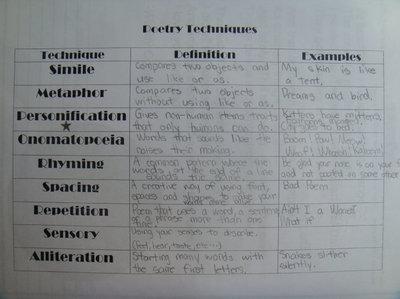 Poetry Techniques
Technique Definition Examples
Simile Compares two objects and My skin is like
use like or as. a tent,
Metaphor Compares two objects Dreams and bird.
without using like or as.
Personification Gives non-human items traits Kittens have mittens,
that only humans can do. City goes to bed.
Onomatopoeia Words that sounds like the Boom! Pow! Meow!
noises their making. Woof! Whoosh! Kaboom!
Rhyming A common pattern where the Be glad your nose is on your f
words at the end of a line and not pasted on some other
sounds the same.
Spacing A creative way of using font, Bad Poem
spaces and shapes to make your
words come alive.
Repetition Poem that uses a word, a sentence Ain't I a Woman?
or a phrase more than one What if
time.
Sensory Using your senses to describe.
(Feel, hear, taste, etc...)
Alliteration Starting many words with Snakes slither
the same first letters. silently.